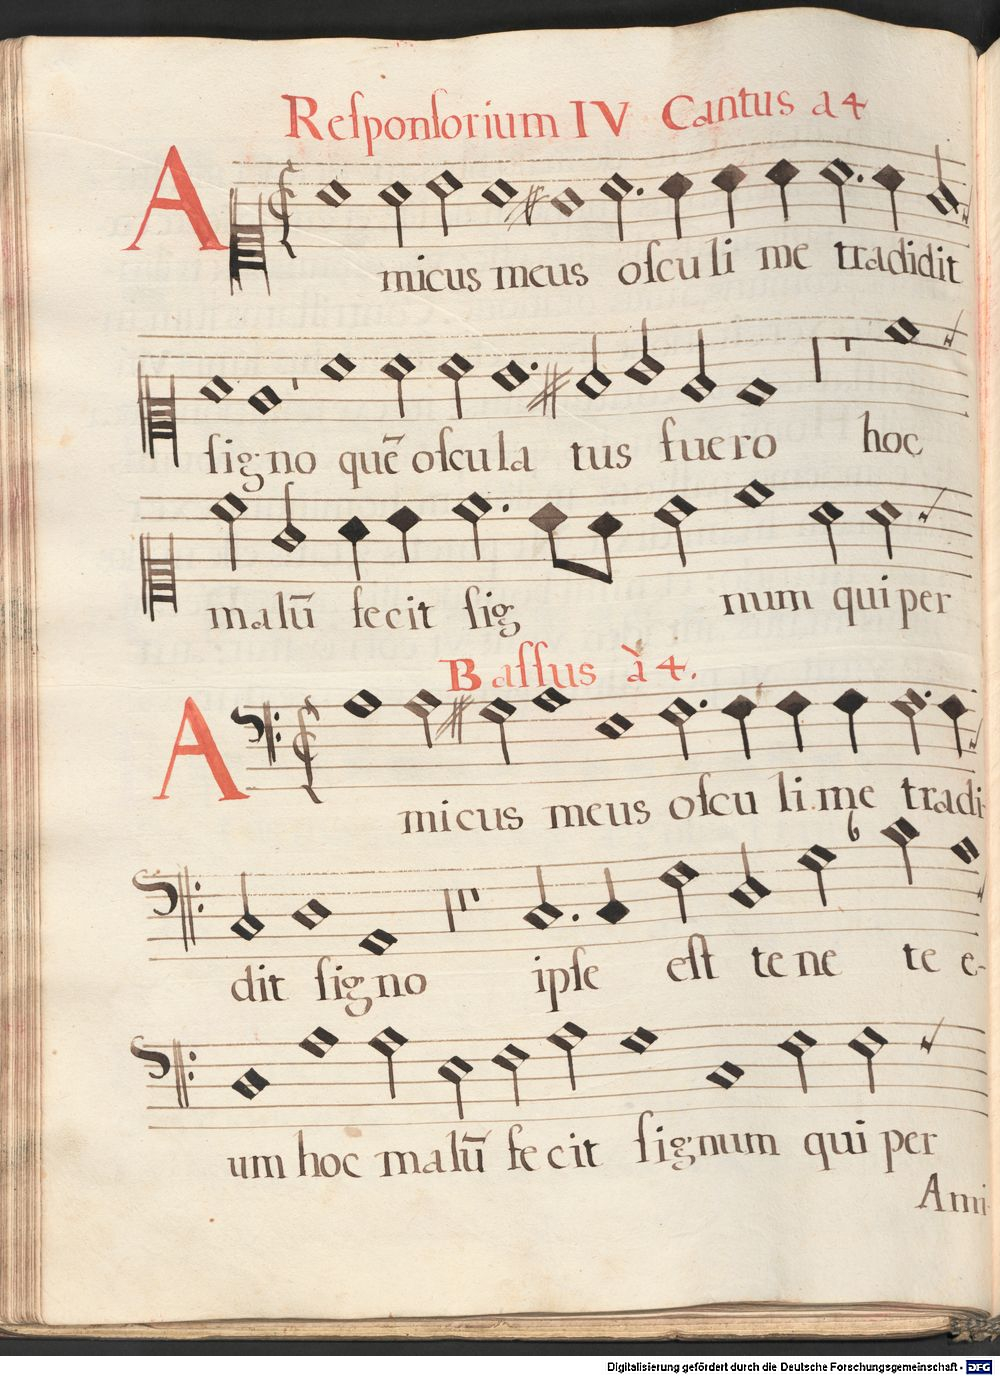 Reſponſorium IV Cantus a 4
A
micus meus oſculi me tradidit
ſigno quē oſculatus fuero hoc
malū fecit ſignum qui per
Baſſus à 4.
A
micus meus oſculi me tradi-
dit ſigno ipſe eſt tenete e-
um hoc malū fecit ſignum qui per
Ami-
Digitalisierung gefördert durch die Deutsche Forschungsgemeinschaft - DFG